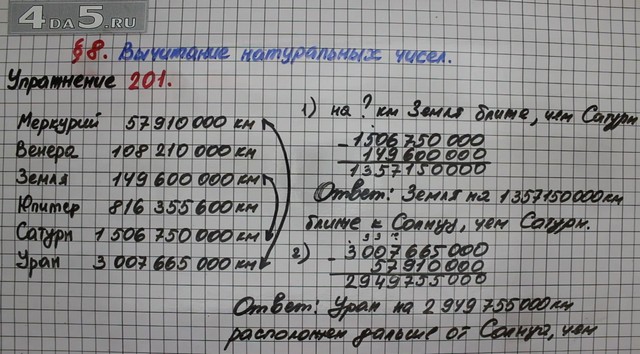 4DA5.RU
§8. Вычитание натуральных чисел.
Упражнение 201.
Меркурий 57 910 000 км
Венера 108 210 000 км
Земля 149 600 000 км
Юпитер 816 355 600 км
Сатурн 1 506 750 000 км
Уран 3 007 665 000 км
1) на ? км Земля ближе, чем Сатурн
- 1506 750 000
149 600 000
1357150000
Ответ: Земля на 1357150000км
ближе к Солнцу, чем Сатурн.
2) - 3007665 000
57910000
2949755000
Ответ: Уран на 2 949 755000км
расположен дальше от Солнца, чем